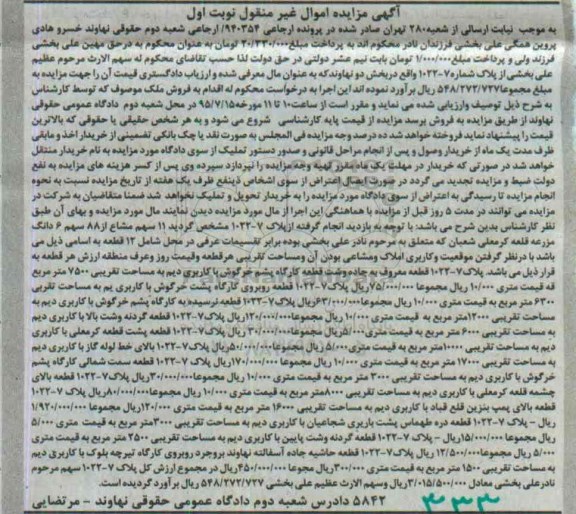 آگهی مزایده اموال غیر منقول نوبت اول
به موجب نیابت ارسالی از شعبه۲۸۰ تهران صادر شده در پرونده ارجاعی ۹۴۰۳۵۴/ ارجاعی شعبه دوم حقوقی نهاوند خسرو هادی
پروین همگی علی بخشی فرزندان نادر محکوم اند به پرداخت مبلغ۲۰/۳۳۰/۰۰۰ تومان به عنوان محکوم به درحق مهین علی بخشی
فرزند ولی و پرداخت مبلغ۱/۰۰۰/۰۰۰ تومان بابت نیم عشر دولتی در حق دولت لذا حسب تقاضای محکوم له سهم الارث مرحوم عظیم
علی بخشی از پلاک شماره۷-۱۰۲۲ واقع دربخش دو نهاوندکه به عنوان مال معرفی شده و ارزیاب دادگستری قیمت آن را جهت مزایده به
مبلغ مجموعا۵۴۸/۲۷۲/۷۲۷ ریال برآورد نموده اند این اجرا به درخواست محکوم له اقدام به فروش ملک موصوف که توسط کارشناس
به شرح ذیل توصیف وارزیابی شده می نماید و مقرر است از ساعت۱۰ تا ۱۱ مورخه۹۵/۷/۱۵ در محل شعبه دوم دادگاه عمومی حقوقی
نهاوند از طریق مزایده به فروش برسد مزایده از قیمت پایه کارشناسی شروع می شود و به هر شخص حقیقی یا حقوقی که بالاترین
قیمت را پیشنهاد نماید فروخته خواهد شد ده درصد وجه مزایده فی المجلس به صورت نقد یا چک بانکی تضمینی از خریدار اخذ و مابقی
ظرف مدت یک ماه از خریدار وصول و پس از انجام مراحل قانونی و صدور دستور تملیک از سوی دادگاه مورد مزایده به نام خریدار منتقل
خواهد شد در صورتی که خریدار در مهلت یک ماه مقرر بقیه وجه مزایده را نپردازد سپرده وی پس از کسر هزینه های مزایده به نفع
دولت ضبط و مزایده تجدید می گردد در صورت ایصال اعتراض از سوی اشخاص ذینفع ظرف یک هفته از تاریخ مزایده نسبت به نحوه
انجام مزایده تا رسیدگی به اعتراض از سوی دادگاه مورد مزایده را به خریدار تحویل و تملیک نخواهد شد ضمنا متقاضیان به شرکت در
مزایده می توانند در مدت ۵ روز قبل از مزایده با هماهنگی این اجرا از مال مورد مزایده دیدن نمایند مال مورد مزایده و بهای آن طبق
نظر کارشناس بدین شرح می باشد: با توجه به بازدید انجام گرفته ازپلاک ۷-۱۰۲۲ مشخص گردید ۱۱ سهم مشاع از۸۸ سهم ۶ دانگ
مزرعه قلعه کرمعلی شعبان که متعلق به مرحوم نادر علی بخشی بوده برابر تقسیمات عرفی در محل شامل ۱۲ قطعه به اسامی ذیل می
باشد با درنظر گرفتن موقعیت وکاربری املاک ومشاعی بودن آن ومساحت تقریبی هرقطعه وقیمت روز وعرف منطقه ارزش هر قطعه به
قرار ذیل می باشد. پلاک۷-۱۰۲۲ قطعه معروف به جاده وشت قطعه کارگاه پشم خرگوش با کاربری دیم به مساحت تقریبی ۷۵۰۰ متر مربع
قه قیمت متری ۱۰/۰۰۰ ریال مجموعا۷۵/۰۰۰/۰۰۰ریال پلاک۷-۱۰۲۲ قطعه روبروی کارگاه پشت خرگوش با کاربری یم به مساحت تقریبی
۶۳۰۰ متر مربع به قیمت متری ۱۰/۰۰۰ ریال مجموعا۶۳/۰۰۰/۰۰۰ریال پلاک۷-۱۰۲۲ قطعه نرسیده به کارگاه پشم خرگوش با کاربری دیم به
مساحت تقریبی ۱۲۰۰۰متر مربع به قیمت متری ۱۰/۰۰۰ ریال مجموعا۱۲۰/۰۰۰/۰۰۰ریال پلاک۷-۱۰۲۲ قطعه گردنه وشت بالا با کاربری دیم
به مساحت تقریبی ۶۰۰۰ متر مربع به قیمت متری ۵/۰۰۰ریال مجموعا۳۰/۰۰۰/۰۰۰ریال پلاک۷-۱۰۲۲ قطعه پشت قطعه کرمعلی با کاربری
دیم به مساحت تقریبی ۱۰۰۰۰متر مربع به قیمت متری ۵/۰۰۰ ریال مجموعا۵۰/۰۰۰/۰۰۰ریال پلاک۷-۱۰۲۲ بالای خط لوله گاز با کاربری دیم
به مساحت تقریبی ۱۷۰۰۰ متر مربع به قیمت متری ۱۰/۰۰۰ ریال مجموعا۱۷۰/۰۰۰/۰۰۰ریال پلاک۷-۱۰۲۲ قطعه سمت شمالی کارگاه پشم
خرگوش با کاربری دیم به مساحت تقریبی ۳۰۰۰ متر مربع به قیمت متری ۱۰/۰۰۰ ریال مجموعا۳۰/۰۰۰/۰۰۰ریال پلاک۷-۱۰۲۲ قطعه بالای
چشمه قلعه کرمعلی با کاربری دیم به مساحت تقریبی ۸۰۰۰متر مربع به قیمت متری ۱۰/۰۰۰ ریال مجموعا۸۰/۰۰۰/۰۰۰ریال پلاک۷-۱۰۲۲
قطعه بالای پمپ بنزین قلع قباد با کاربری دیم به مساحت تقریبی ۱۶۰۰۰ متر مربع به قیمت متری ۱۲۰/۰۰۰ریال مجموعا ۱/۹۲۰/۰۰۰/۰۰۰
ریال – پلاک ۷-۱۰۲۲ قطعه دره طهماس پشت باربری شجاعیان با کاربری دیم به مساحت تقریبی ۳۰۰۰متر مربع به قیمت متری ۵/۰۰۰
ریال مجموعا ۱۵/۰۰۰/۰۰۰ریال – پلاک ۷-۱۰۲۲ قطعه گردنه وشت پایین با کاربری دیم به مساحت تقریبی ۲۵۰۰ متر مربع به قیمت متری
۵/۰۰۰ ریال مجموعا ۱۲/۵۰۰/۰۰۰ریال پلاک۷-۱۰۲۲ قطعه حاشیه جاده آسفالته نهاوند بروجرد روبروی کارگاه تیرچه بلوک با کاربری دیم
به مساحت تقریبی ۱۵۰۰ متر مربع به قیمت متری ۳۰۰/۰۰۰ ریال مجموعا ۴۵۰/۰۰۰/۰۰۰ریال در مجموع ارزش کل پلاک ۷-۱۰۲۲سهم مرحوم
نادرعلی بخشی معادل ۳/۰۱۵/۵۰۰/۰۰۰ریال وسهم الارث عظیم علی بخشی ۵۴۸/۲۷۲/۷۲۷ ریال برآورد گردیده است.
۵۸۴۲ دادرس شعبه دوم دادگاه عمومی حقوقی نهاوند - مرتضایی
۴۳۳